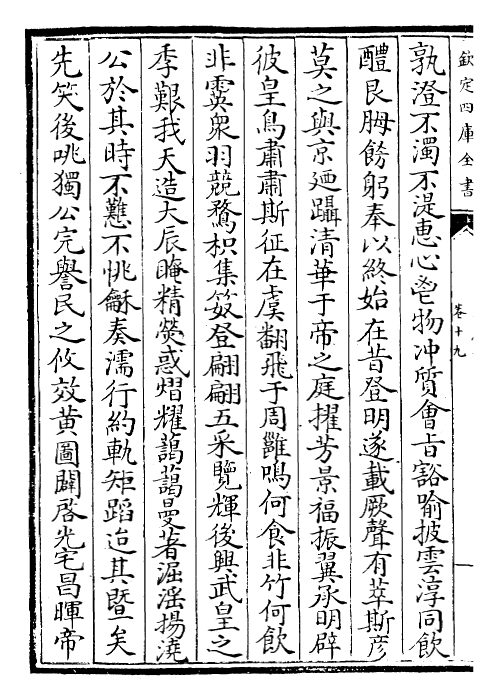 欽定四庫全書
卷十九
孰澄不濁不湜惠心鬯物冲質會旨豁喻披雲淳同飲
醴艮胟餝躬奉以終始在昔登明遂載厥聲有萃斯彦
莫之與京廼躡清華于帝之庭擢芳景福振翼承明辟
彼皇鳥肅肅斯征在虞翻飛于周雝鳴何食非竹何飲
非霙衆羽競鶩枳集笯登翩翩五采覽輝後興武皇之
季艱我天造大辰晻精熒惑熠耀藹藹曼著淈滛揚澆
公於其時不戁不恌龢奏濡行約軌矩蹈迨其暨矣
先笑後咷獨公完譽民之攸效黄圖闢啓光宅昌暉帝